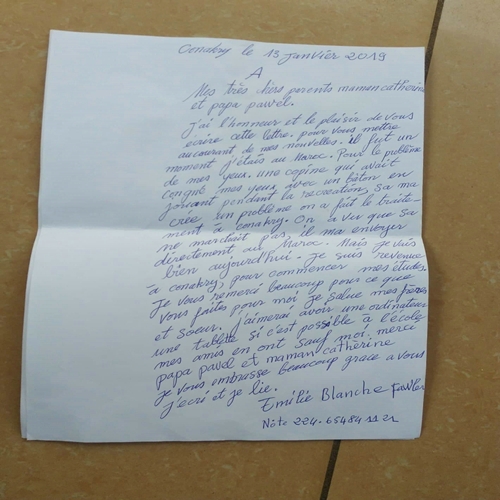 Conakry le 13 janvier 2019
A
Mes très chers parents maman catherine
et papa pawel.
j'ai l'honneur et le plaisir de vous
ecrire cette lettre. pour vous mettre
au courant de mes nouvelles. il fut un
moment j'étais au Maroc. Pour le problème
de mes yeux. une copine qui avait
congné mes yeux avec un bâton en
jouant pendant la recreation. sa ma
crée un problème on a fait le traite-
ment à conakry. On a vu que sa
ne marchait pas, il ma envoyer
directement au Maroc. Mais je vais
bien aujourd'hui. je suis revenue
à conakry, pour commencer mes études.
je vous remerci beaucoup pour ce que
vous faites pour moi je salue mes frères
et soeur. j'aimerai avoir une ordinateur
une tablette si c'est possible à l'école
mes amis en ont sauf moi. merci
papa pavel et maman catherine
je vous embrasse beaucoup grace a vous
j'ecri et je lie.
Emilie Blanche
Note 224.